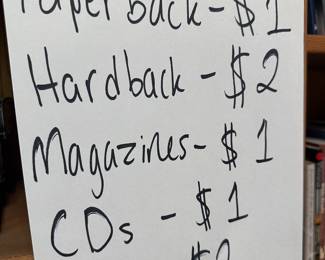 Paperback - $1
Hardback - $2
Magazines - $1
CDs - $1